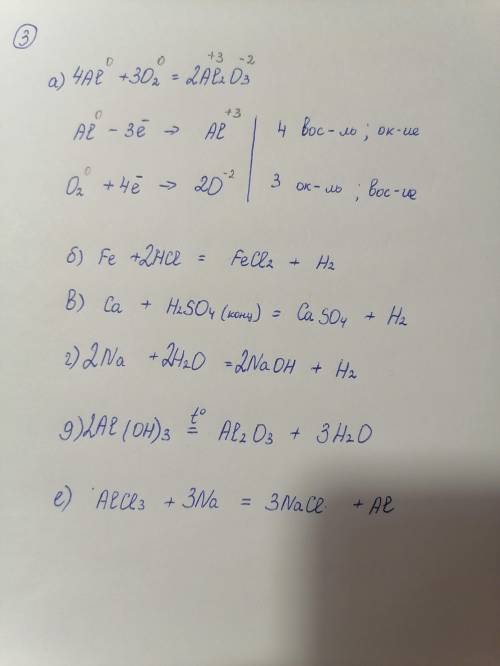 3
а) 4Al⁰ + 3O₂⁰ = 2Al₂⁺³O₃⁻²
Al⁰ - 3ē → Al⁺³ | 4 вос-ль ; ок-ие
O₂⁰ + 4ē → 2O⁻² | 3 ок-ль ; вос-ие
б) Fe + 2HCl = FeCl₂ + H₂
в) Ca + H₂SO₄ (конц) = CaSO₄ + H₂
г) 2Na + 2H₂O = 2NaOH + H₂
д) 2Al(OH)₃ =^(t°) Al₂O₃ + 3H₂O
е) AlCl₃ + 3Na = 3NaCl + Al